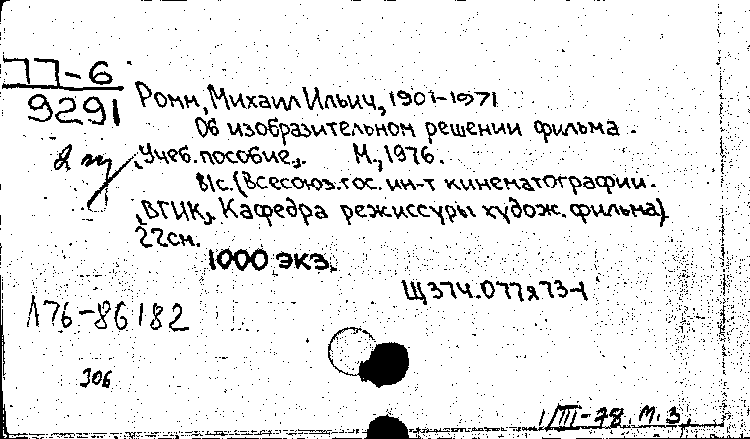 77-6
9291
Ромм, Михаил Ильич, 1901-1971
Об изобразительном решении фильма.
„Учеб. пособие„. М., 1976.
81с. (Всесоюз. гос. ин-т кинематографии.
„ВГИК„. Кафедра режиссуры худож. фильма)
22см.
1000 экз.
Щ374.077я73-1
Л76-86182
306
1/III-78. М. З.